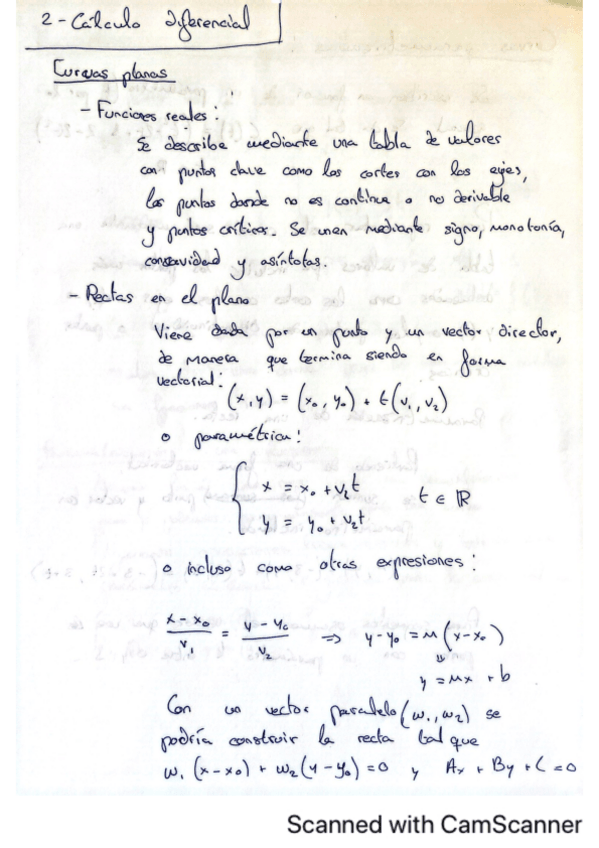 2 - Cálculo diferencial
Curvas planas
- Funciones reales:
Se describe mediante una tabla de valores
con puntos clave como los cortes con los ejes,
los puntos donde no es continua o no derivable
y puntos críticos. Se unen mediante signo, monotonía,
concavidad y asíntotas.
- Rectas en el plano
Viene dada por un punto y un vector director,
de manera que termina siendo en forma
vectorial:
(x, y) = (x₀, y₀) + t(v₁, v₂)
o paramétrica:
x = x₀ + v₂t t ∈ ℝ
y = y₀ + v₂t
o incluso como otras expresiones:
(x - x₀)/v₁ = (y - y₀)/v₂ ⇒ y - y₀ = m(x - x₀)
⇓
y = mx + b
Con un vector paralelo (w₁, w₂) se
podría construir la recta tal que
w₁(x - x₀) + w₂(y - y₀) = 0 y Ax + By + C = 0
Scanned with CamScanner